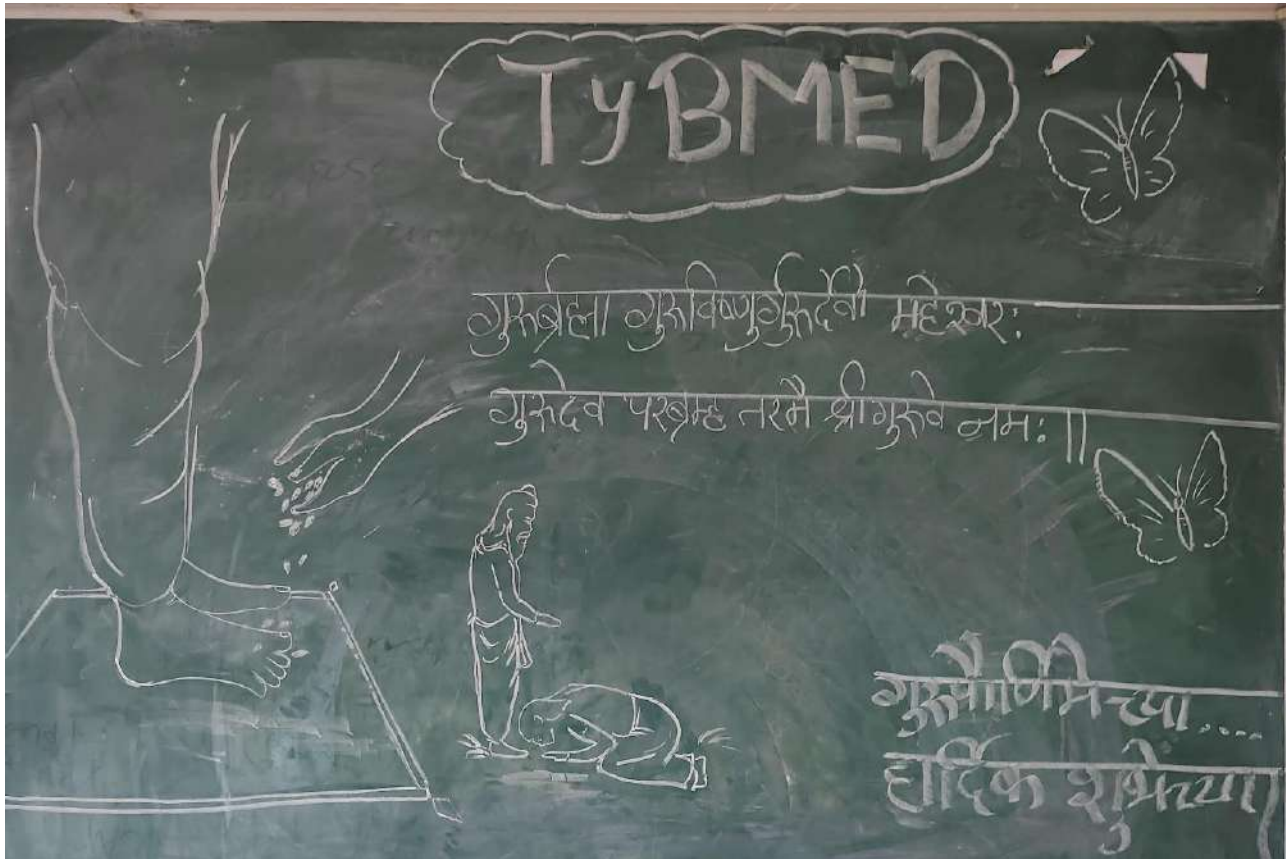 TyBMED
गुरूर्ब्रह्मा गुरूर्विष्णुर्गुरुर्देवो महेश्वर:
गुरूदेव परब्रम्ह तस्मै श्रीगुरूवे नम: ||
गुरूपौर्णिमेच्या....
हार्दिक शुभेच्छा